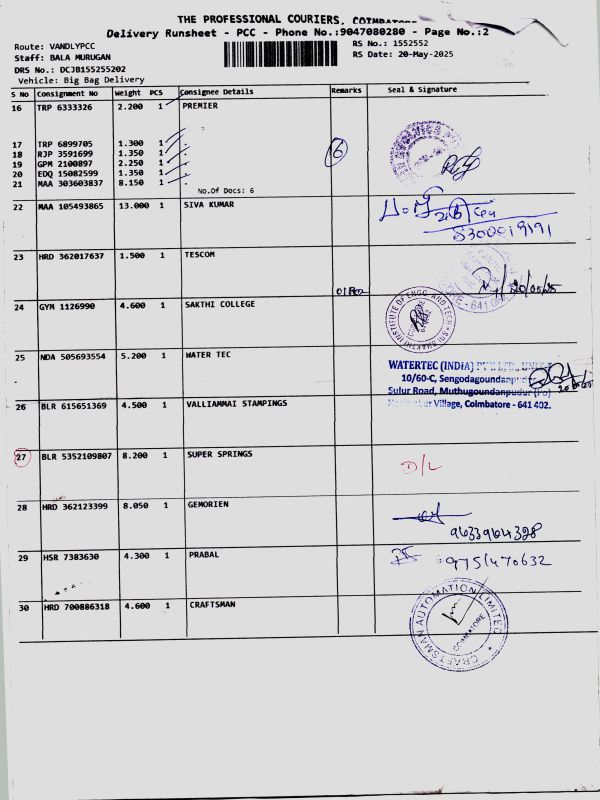 THE PROFESSIONAL COURIERS, COIMBATORE
Delivery Runsheet - PCC - Phone No.:9047080280 - Page No.:2
Route: VANDLYPCC
RS No.: 1552552
Staff: BALA MURUGAN
RS Date: 20-May-2025
DRS No.: DCJB155255202
Vehicle: Big Bag Delivery
S No Consignment No Weight PCS Consignee Details Remarks Seal & Signature
16 TRP 6333326 2.200 1 PREMIER
17 TRP 6899705 1.300 1 .
18 RJP 3591699 1.350 1 .
19 GPM 2100897 2.250 1 .
20 EDQ 15082599 1.350 1 .
21 MAA 303603837 8.150 1 .
No.Of Docs: 6
6
22 MAA 105493865 13.000 1 SIVA KUMAR
5300019191
23 HRD 362017637 1.500 1 TESCOM
24 GYM 1126990 4.600 1 SAKTHI COLLEGE
25 NDA 505693554 5.200 1 WATER TEC
WATERTEC (INDIA) PVT LTD, UNIT-I
10/60-C, Sengodagoundanpudur
Sulur Road, Muthugoundanpudur (Po)
Village, Coimbatore - 641 402.
26 BLR 615651369 4.500 1 VALLIAMMAI STAMPINGS
27 BLR 5352109807 8.200 1 SUPER SPRINGS
D/L
28 HRD 362123399 8.050 1 GEMORIEN
9633964328
29 HSR 7383630 4.300 1 PRABAL
9751470632
30 HRD 700886318 4.600 1 CRAFTSMAN
CRAFTSMAN AUTOMATION LIMITED
COIMBATORE